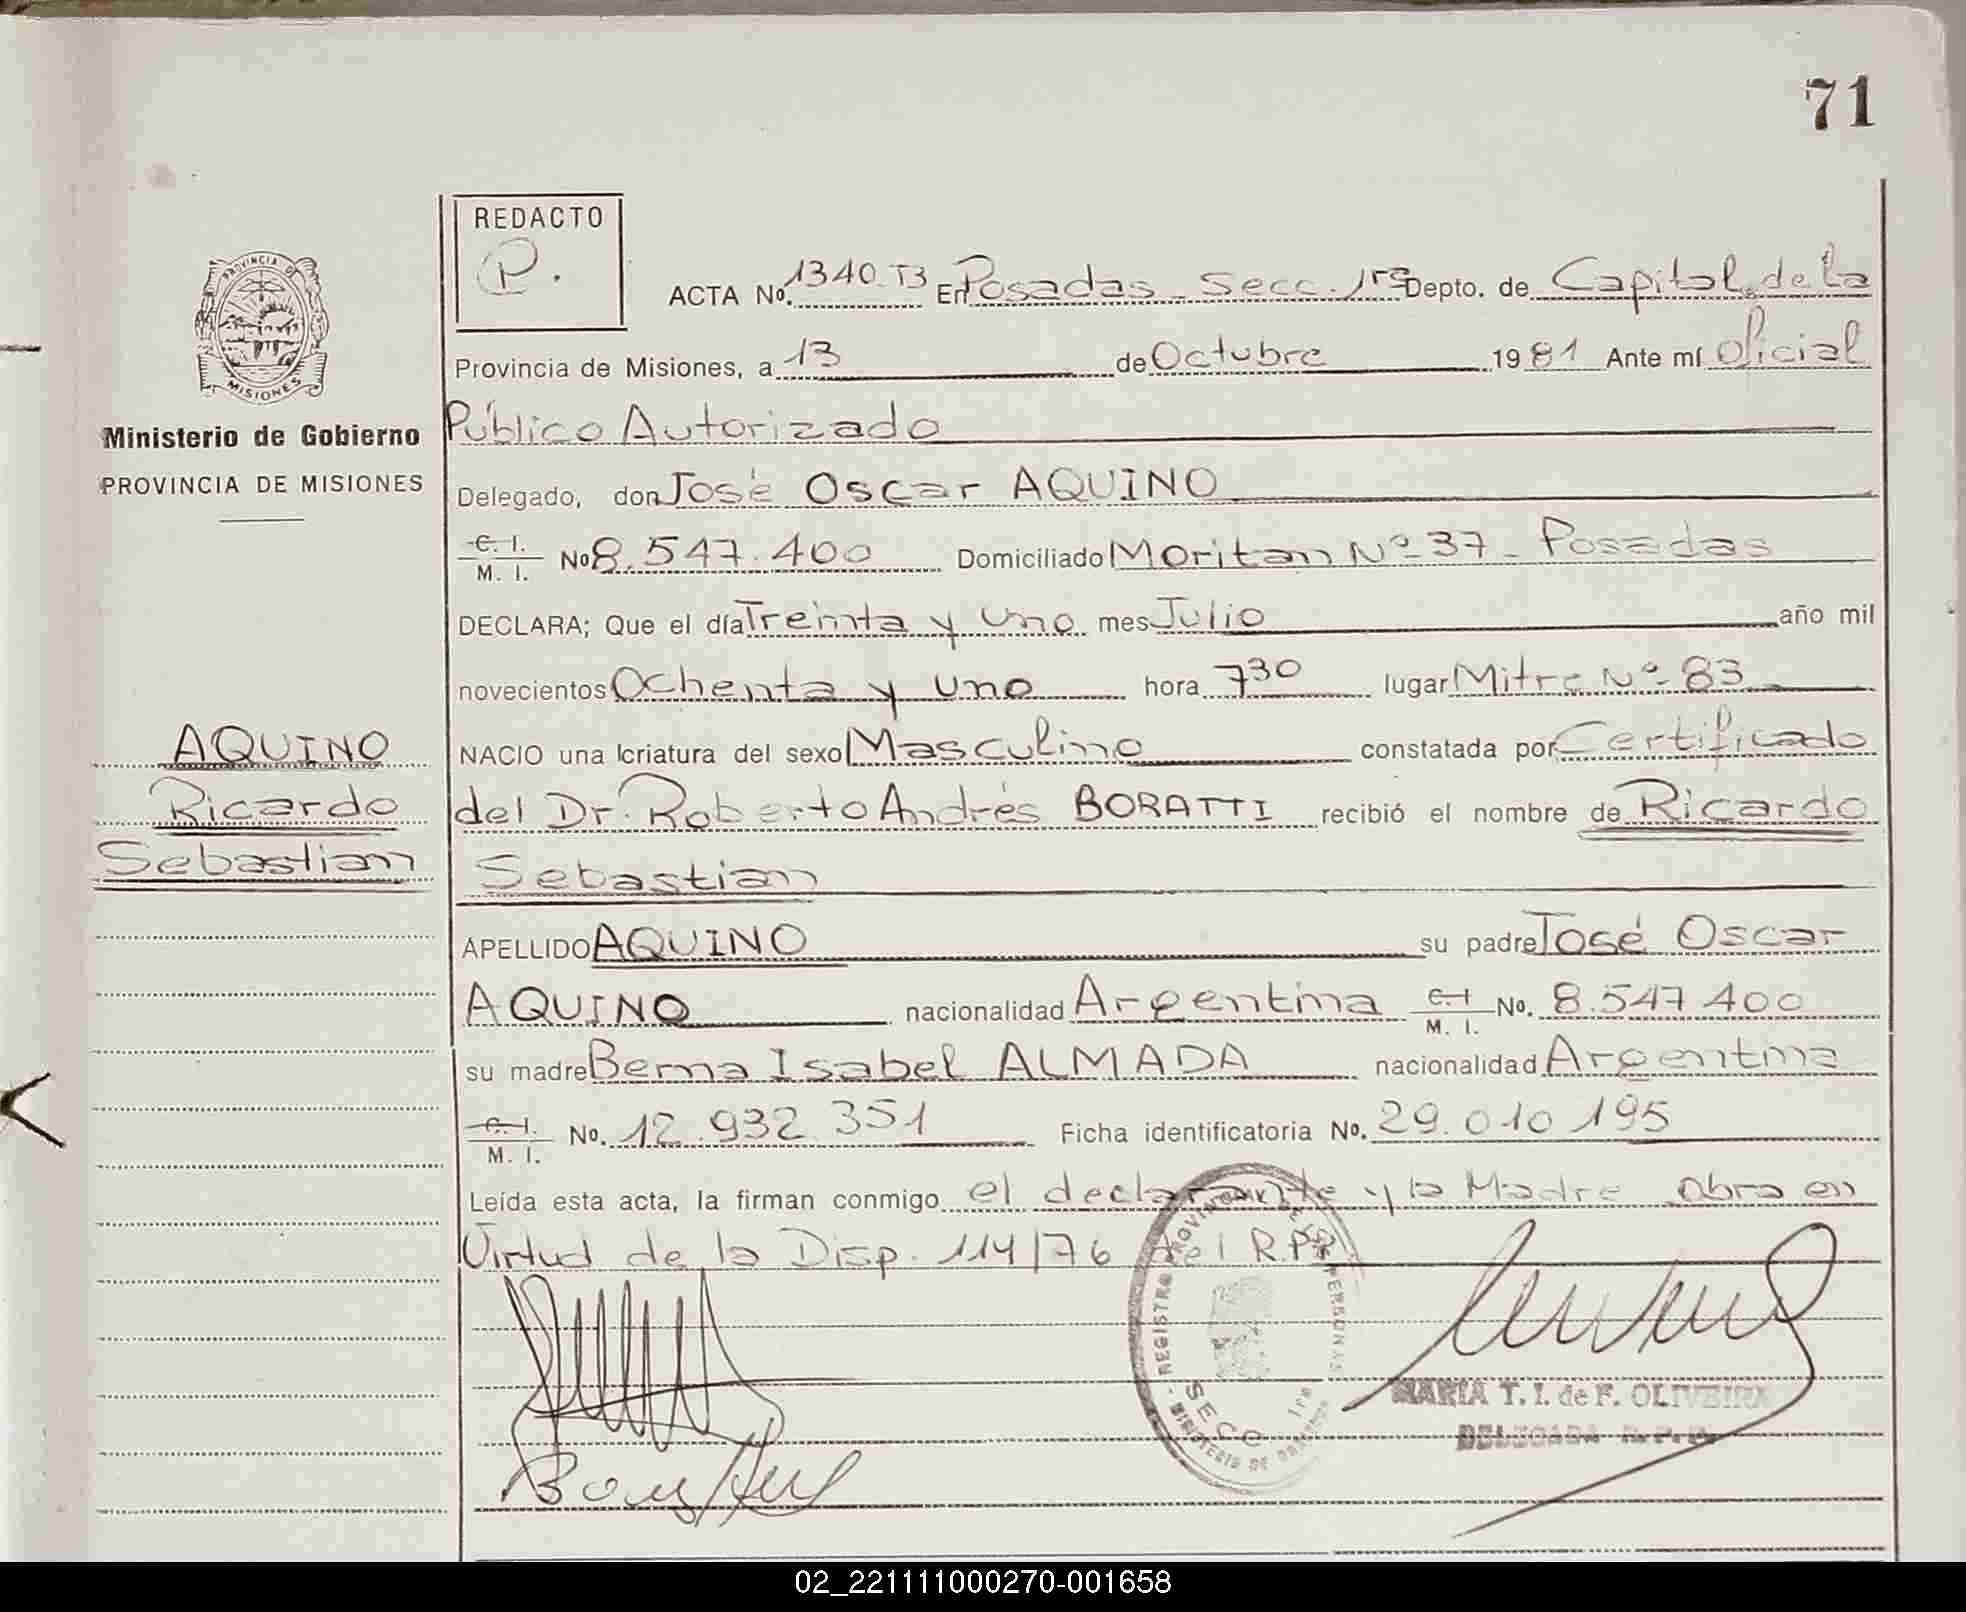 71
REDACTO
P.
ACTA No. 1340.T3 En Posadas - Secc. 1ra Depto. de Capital de la
Provincia de Misiones, a 13 de Octubre 1981 Ante mí Oficial
Público Autorizado
Delegado, don José Oscar AQUINO
C. I.
M. I. No 8.547.400 Domiciliado Moritan Nº 37 - Posadas
DECLARA; Que el día Treinta y Uno mes Julio año mil
novecientos Ochenta y Uno hora 730 lugar Mitre Nº 83
NACIO una criatura del sexo Masculino constatada por Certificado
del Dr. Roberto Andrés BORATTI recibió el nombre de Ricardo
Sebastian
APELLIDO AQUINO su padre José Oscar
AQUINO nacionalidad Argentina C. I. M. I. No. 8.547 400
su madre Berna Isabel ALMADA nacionalidad Argentina
C. I.
M. I. No. 12.932.351 Ficha identificatoria No. 29.010 195
Leída esta acta, la firman conmigo el declarante y la Madre Obra en
Virtud de la Disp. 114/76 del R.P.P.
PROVINCIA DE
MISIONES
Ministerio de Gobierno
PROVINCIA DE MISIONES
AQUINO
Ricardo
Sebastian
REGISTRO PROVINCIAL DE LAS PERSONAS
SECC 1ra
MINISTERIO DE GOBIERNO
MARIA T. I. de F. OLIVEIRA
DELEGADA R.P.P.
02_221111000270-001658